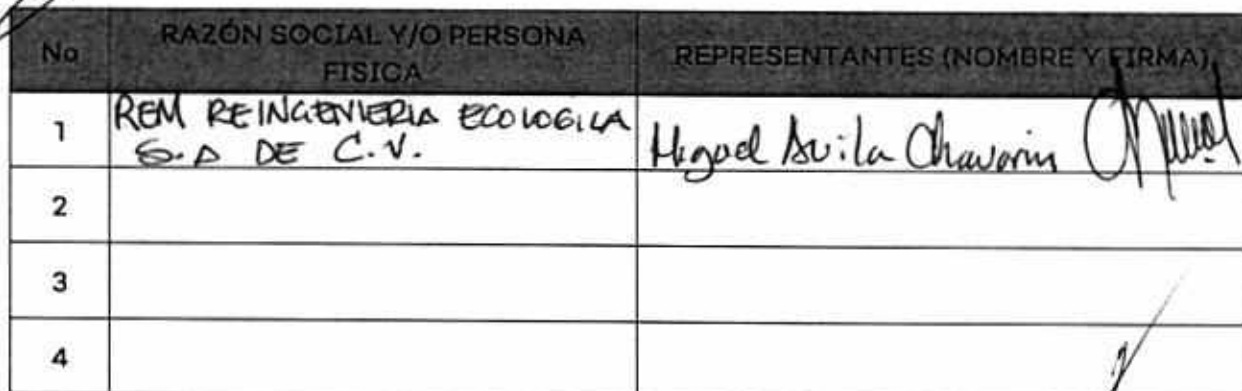 No
RAZÓN SOCIAL Y/O PERSONA
FISICA
REPRESENTANTES (NOMBRE Y FIRMA)
1
REM REINGENIERIA ECOLOGICA
S.A DE C.V.
Miguel Avila Chavarin
2
3
4